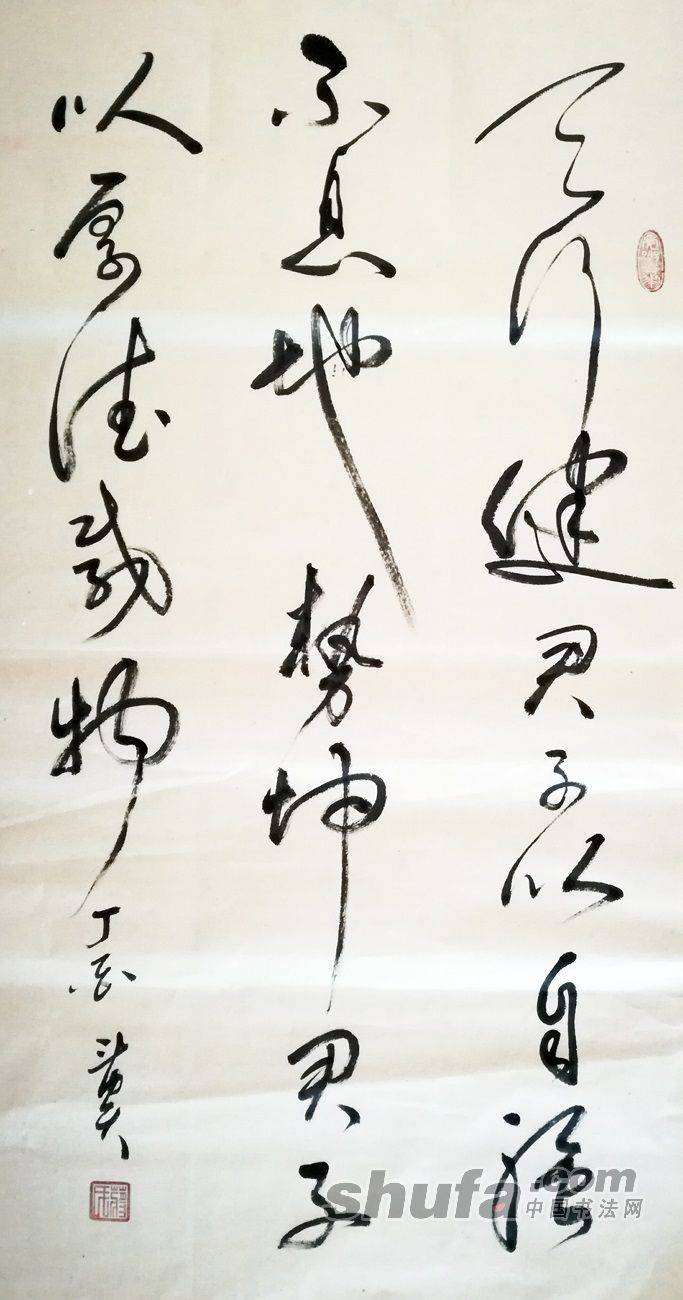 天行健君子以自强
不息地势坤君子
以厚德载物
shufa.com
中国书法网